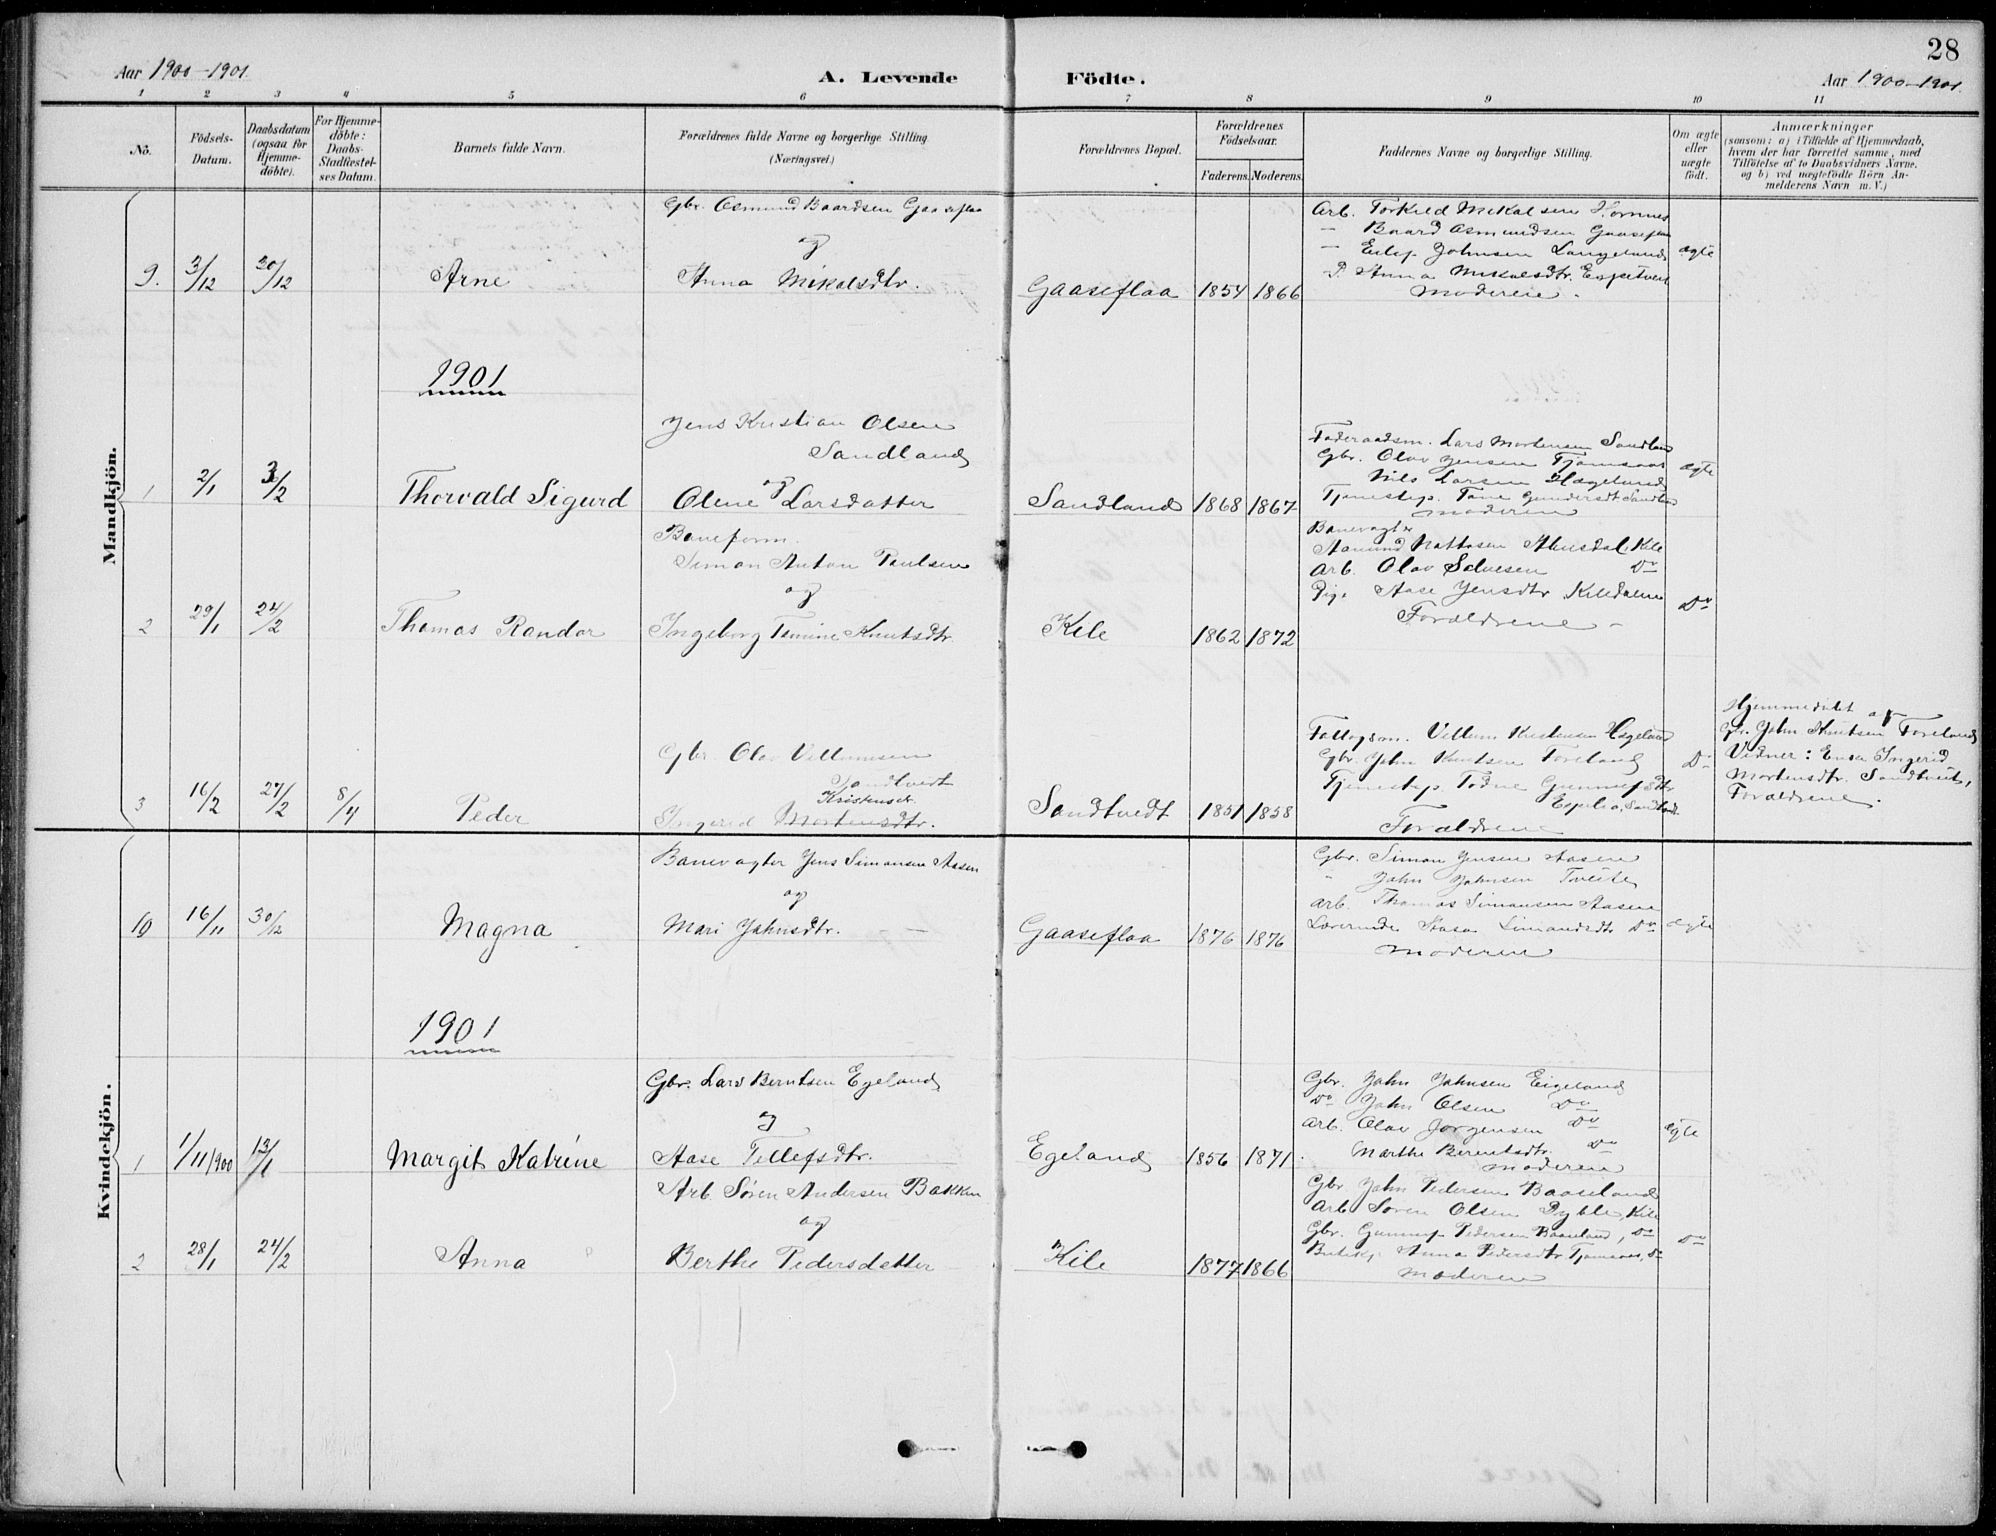 28
Aar 1900-1901. A. Levende Födte. Aar 1900-1901.
1 2 3 4 5 6 7 8 9 10 11
No.
Födsels-
Datum.
Daabsdatum
(ogsaa for
Hjemme-
döbte).
For Hjemme-
döbte:
Daabs-
Stadfæstel-
ses Datum.
Barnets fulde Navn.
Forældrenes fulde Navne og borgerlige Stilling
(Næringsvei.)
Forældrenes Bopæl.
Forældrenes
Födselsaar.
Faderens. Moderens.
Faddernes Navne og borgerlige Stilling.
Om ægte
eller
uægte
födt.
Anmærkninger
(saasom: a) i Tilfælde af Hjemmedaab,
hvem der har forrettet samme, med
Tilföielse af to Daabsvidners Navne,
og b) ved uægtefödte Börn An-
melderens Navn m. V.)
Mandkjön.
Gbr. Osmund Baardsen Gaaseflaa
og
9. 3/12 30/12 Arne Anna Mikalsdtr. Gaaseflaa 1854 1866
Arb. Torkild Mikalsen Hornnes
— Baard Osmundsen Gaaseflaa
— Eilef Johnsen Langeland ægte
P. Anna Mikalsdtr. Espetveit
Moderen.
1901
Jens Kristian Olsen
Sandland
og
1 2/1 3/2 Thorvald Sigurd Olene Larsdatter Sandland 1868 1867
Foderaadsm. Lars Mortensen Sandland
Gbr. Olav Jensen Tjomsaas ægte
Nils Larsen Hægeland
Tjenestep. Tone Gundersdt Sandland
Moderen
Baneform.
Simon Anton Paulsen
og
2 29/1 24/2 Thomas Randor Ingeborg Tomine Knutsdtr. Kile 1862 1872
Banevagter
Aamund Nattosen Kile
Arb. Olav Salvesen Do
Pige Aase Jensdtr Kiledalen Do
Forældrene
Gbr. Olav Villumsen
Sandtvedt
Kristensdt.
3 16/2 27/2 8/4 Peder Ingerid Mortensdtr. Sandtvedt 1851 1858
Villum Kristensen Hægeland
Gbr. John Knutsen Foreland Do
Tjenestep. Todne Gunnufsdtr
Sandland
Forældrene
Hjemmedøbt af
Gbr. John Knutsen Foreland
Vidner: Enke Ingerid
Mortensdtr. Sandtveit,
Forældrene.
Kvindekjön.
Banevagter Jens Simonsen Aasen
og
10 16/11 30/12 Magna Mari Johnsdtr. Gaaseflaa 1876 1876
Gbr. Simon Jensen Aasen
" John Johnsen Tveite
Arb. Thomas Simonsen Aasen
Lærerinde Aasa Simonsdtr Do ægte
Moderen
1901
Gbr. Lars Berntsen Egeland
og
1 1/11/900 13/1 Margit Katrine Aase Tellefsdtr. Egeland 1856 1871
Gbr. John Johnsen Eigeland
Do John Olsen Do
Arb. Olav Jorgensen Do ægte
Marthe Berentsdtr. Do
Moderen
Arb. Søren Andersen Bakken
og
2 28/1 24/2 Anna Berthe Pedersdatter Kile 1877 1866
Gbr John Pedersen Baaseland
Arb. Soren Olsen Dyble, Kile
Gbr. Gunnuf Pedersen Baaseland, Do Do
Anna Pedersdtr Tjomsaas, Do
Moderen